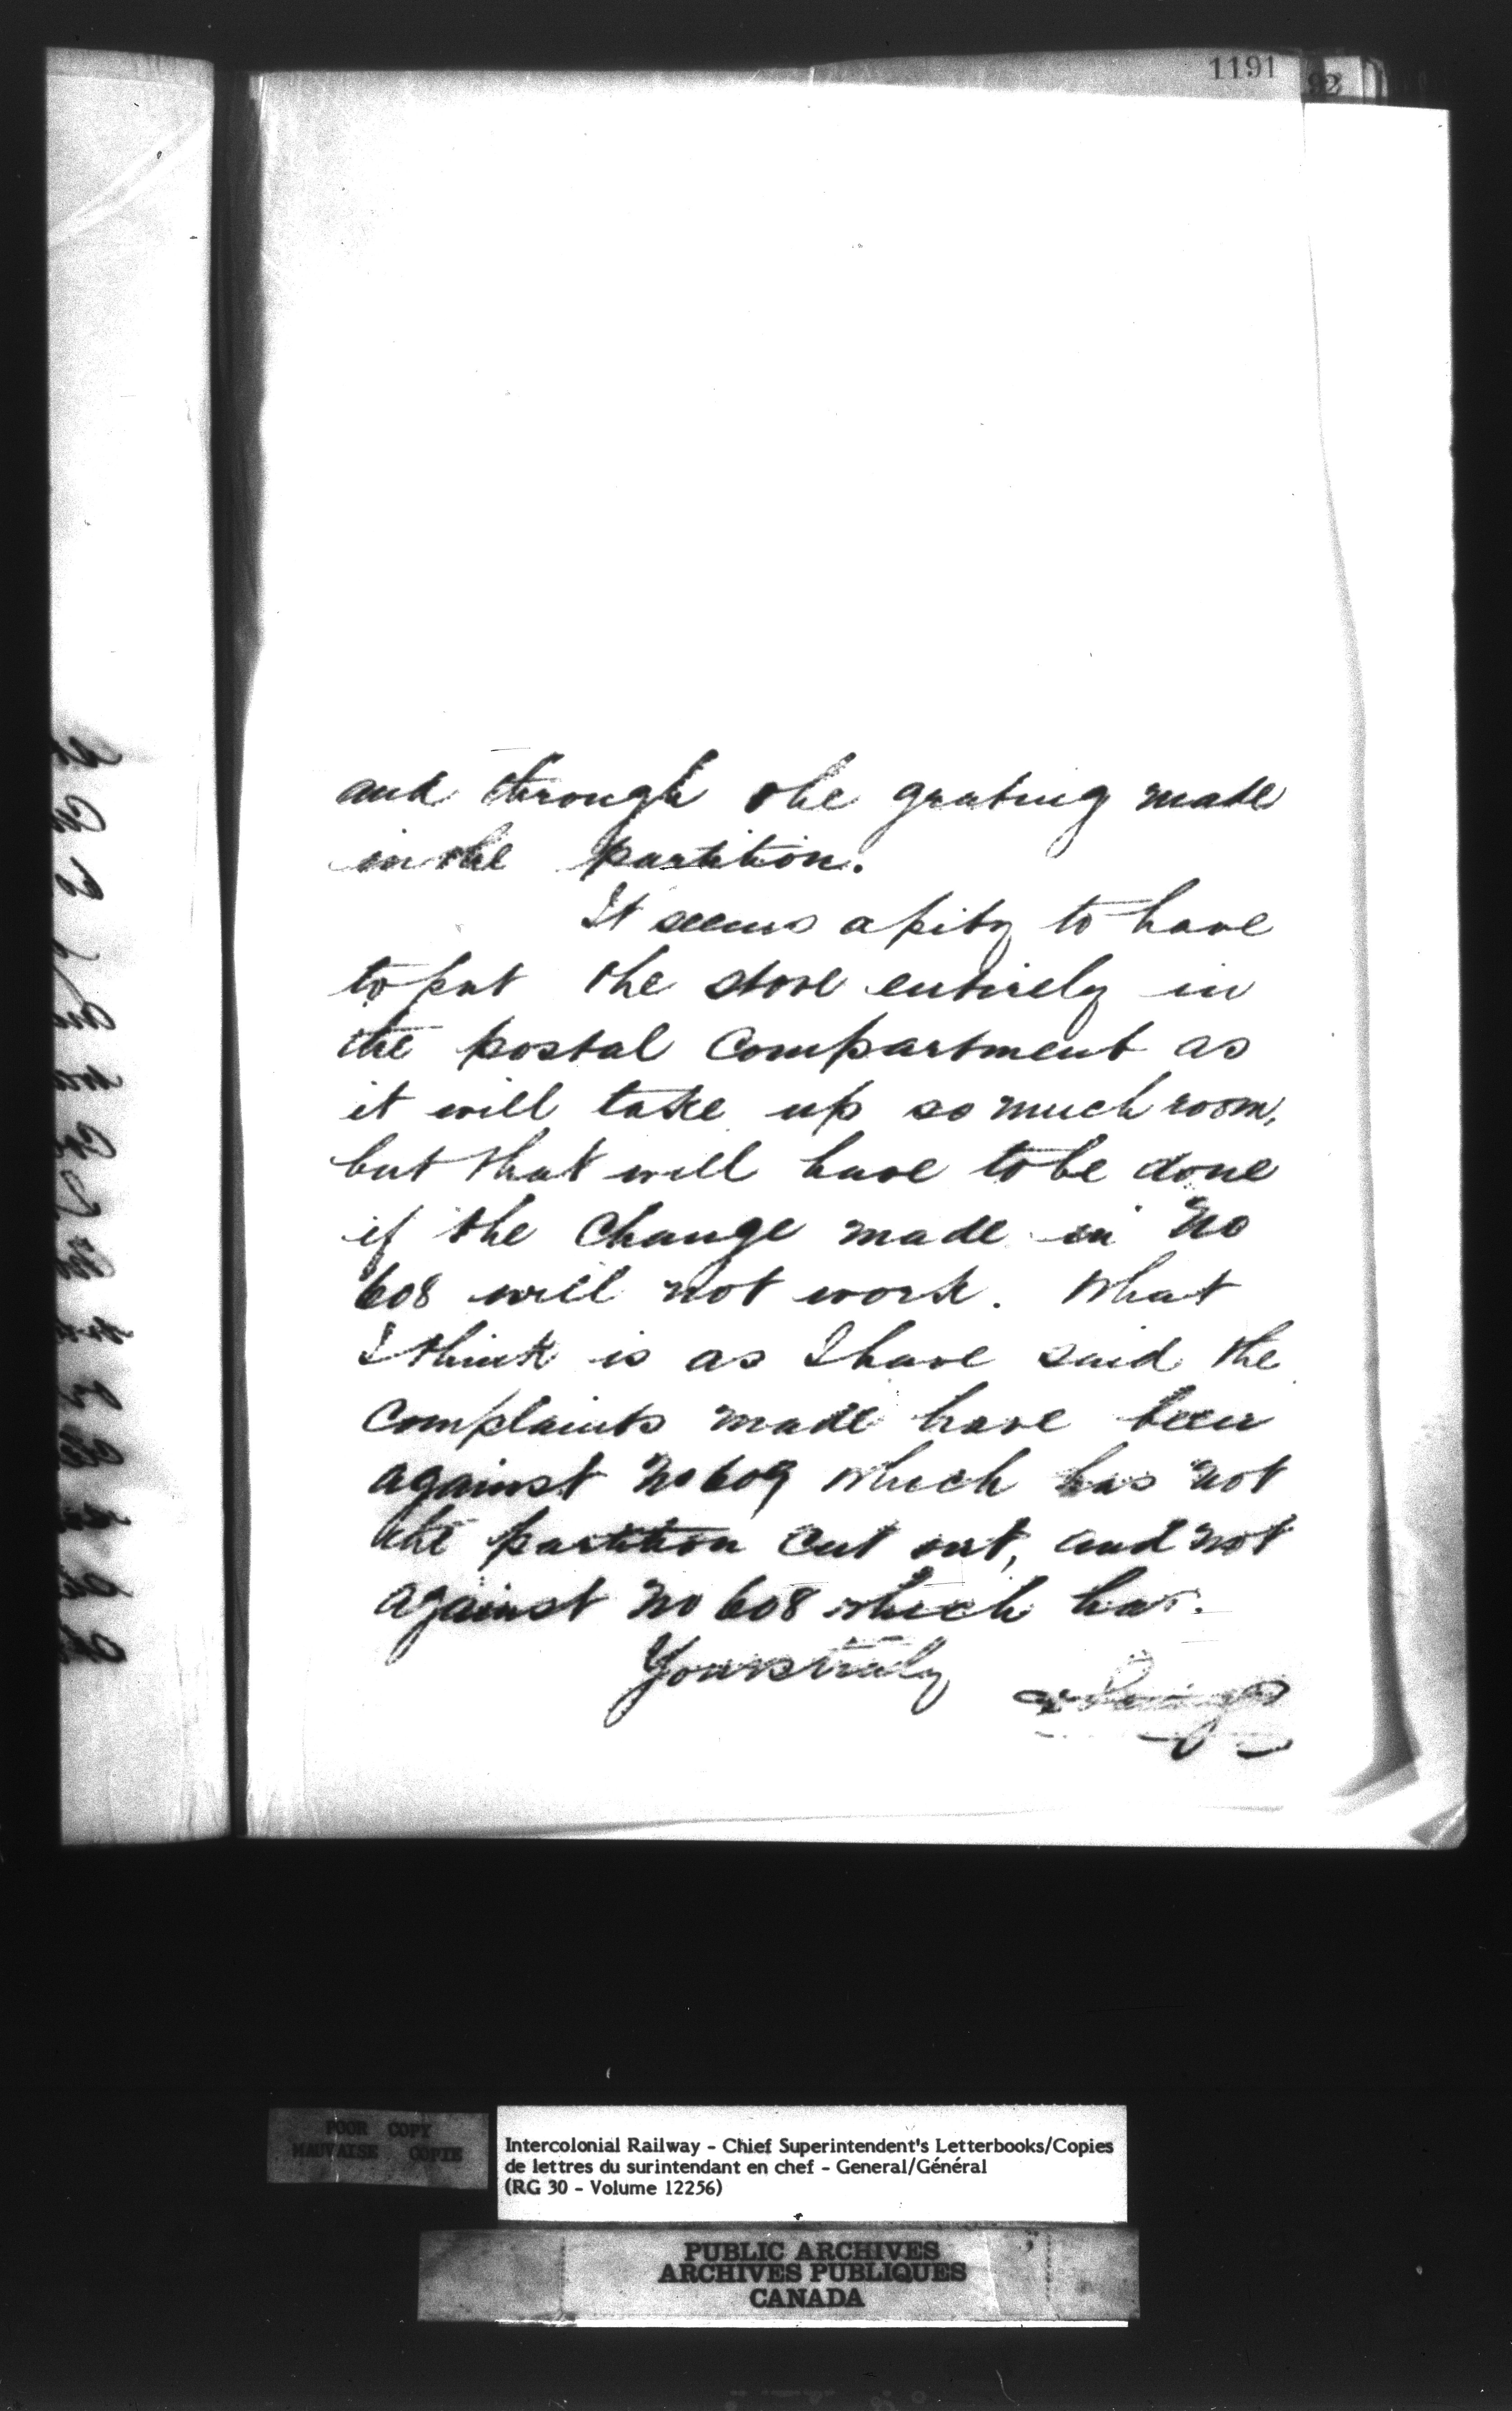 1191
92
and through the grating made
in the partition.
It seems a pity to have
to put the stove entirely in
the postal compartment as
it will take up so much room,
but that will have to be done
if the change made in No
608 will not work. What
I think is as I have said the
complaints made have been
against No 609 which has not
the partition cut out, and not
against No 608 which has.
Yours truly
POOR COPY
MAUVAISE COPIE
Intercolonial Railway - Chief Superintendent's Letterbooks/Copies
de lettres du surintendant en chef - General/Général
(RG 30 - Volume 12256)
PUBLIC ARCHIVES
ARCHIVES PUBLIQUES
CANADA